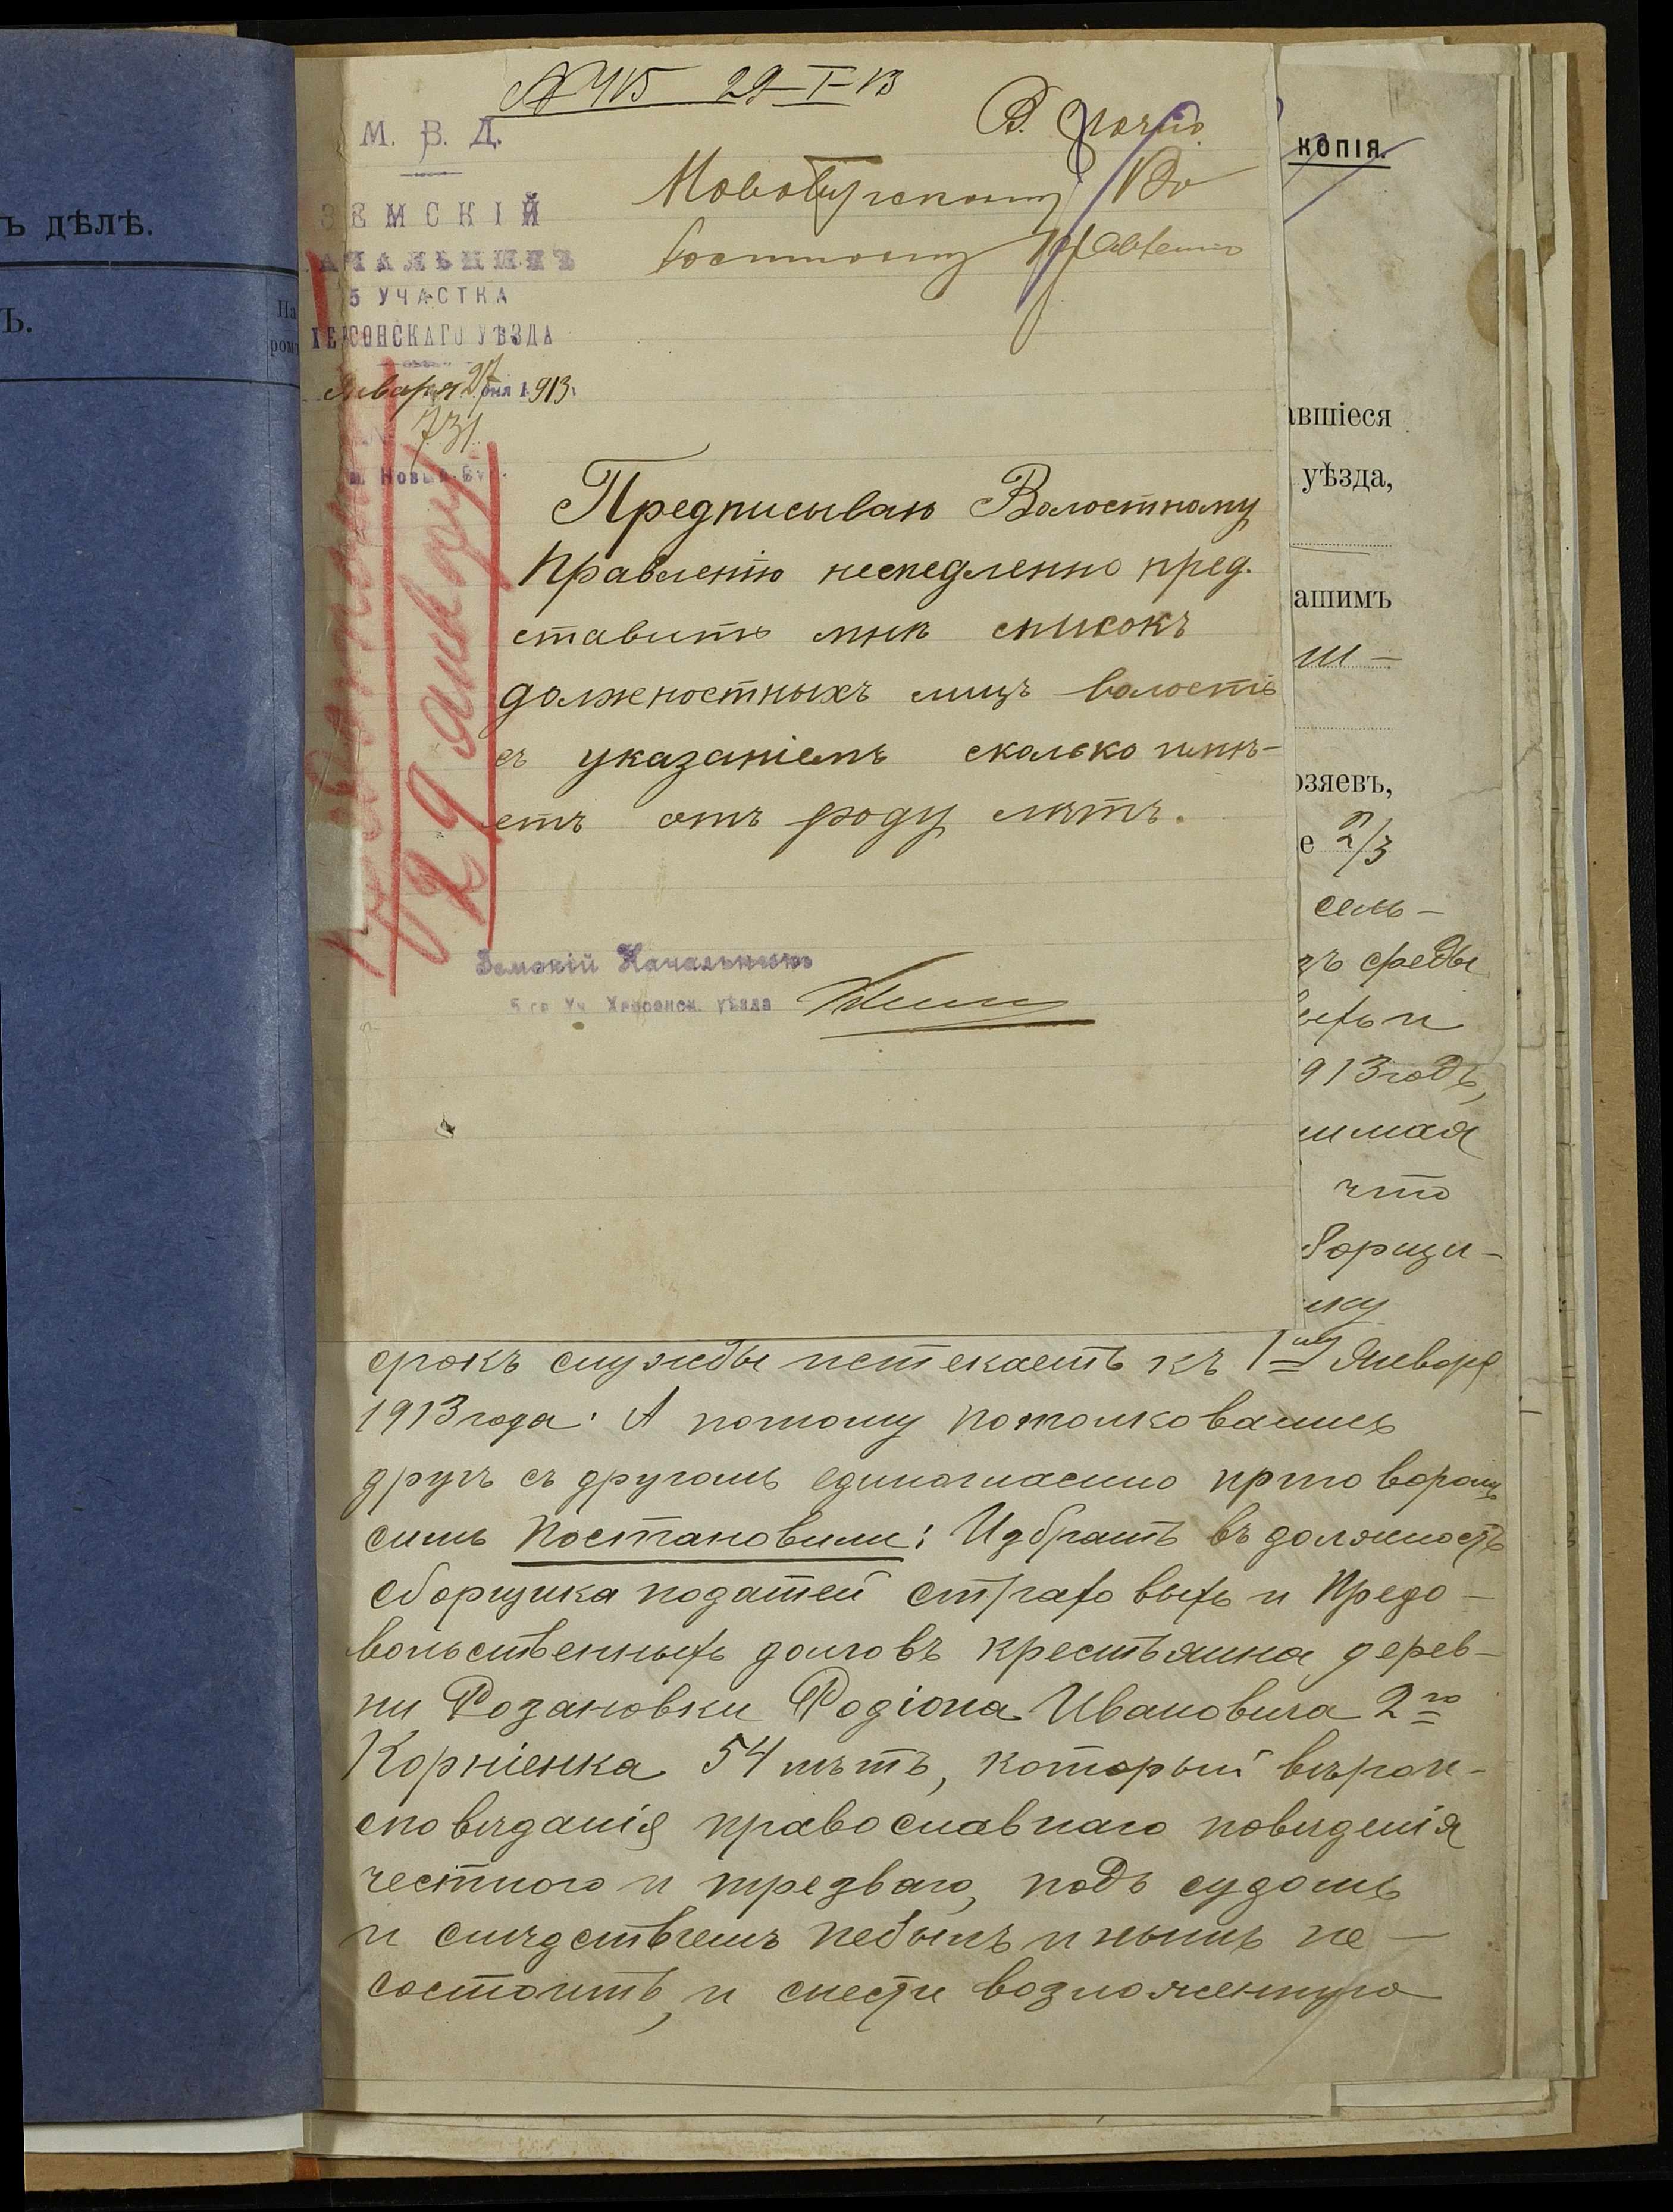 ъ дѣлѣ.
Ъ.
На
ром
№ 415 29-I-13
М. В. Д.
ЗЕМСКІЙ
НАЧАЛЬНИКЪ
5 УЧАСТКА
ХЕРСОНСКАГО УѢЗДА
Января 27 дня 1913
731
м. Новый-Буг
В. срочно
Новобугскому Во
лостному Правленію
29 января
Предписываю Волостному
Правленію немедленно пред-
ставить мнѣ списокъ
должностныхъ лицъ волости
съ указаніемъ сколько имѣ-
етъ отъ роду лѣтъ.
Земскій Начальникъ
5 го Уч. Херсонск. уѣзда
КОПІЯ.
авшіеся
уѣзда,
ашимъ
ш-
озяевъ,
е 2/3
сель-
зъ среды
выхъ и
913 годъ,
имая
что
борщи-
ику
срокъ службы истекаетъ къ 1му Января
1913 года. А потому потолковавши
другъ съ другомъ единогласно приговоромъ
симъ Постановили: Избрать въ должность
сборщика податей страховыхъ и Продо-
вольственныхъ долговъ крестьянина дерев-
ни Розановки Родіона Ивановича 2го
Корніенка 54 лѣтъ, который вѣроис-
повѣданія православнаго поведенія
честного и трезваго, подъ судомъ
и слѣдствіемъ небылъ и нынѣ не-
состоитъ, и снести возложенную